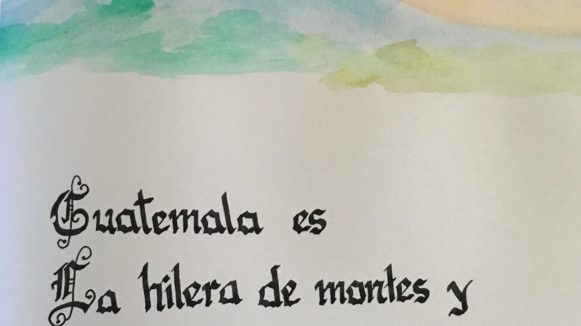 Guatemala es
La hilera de montes y